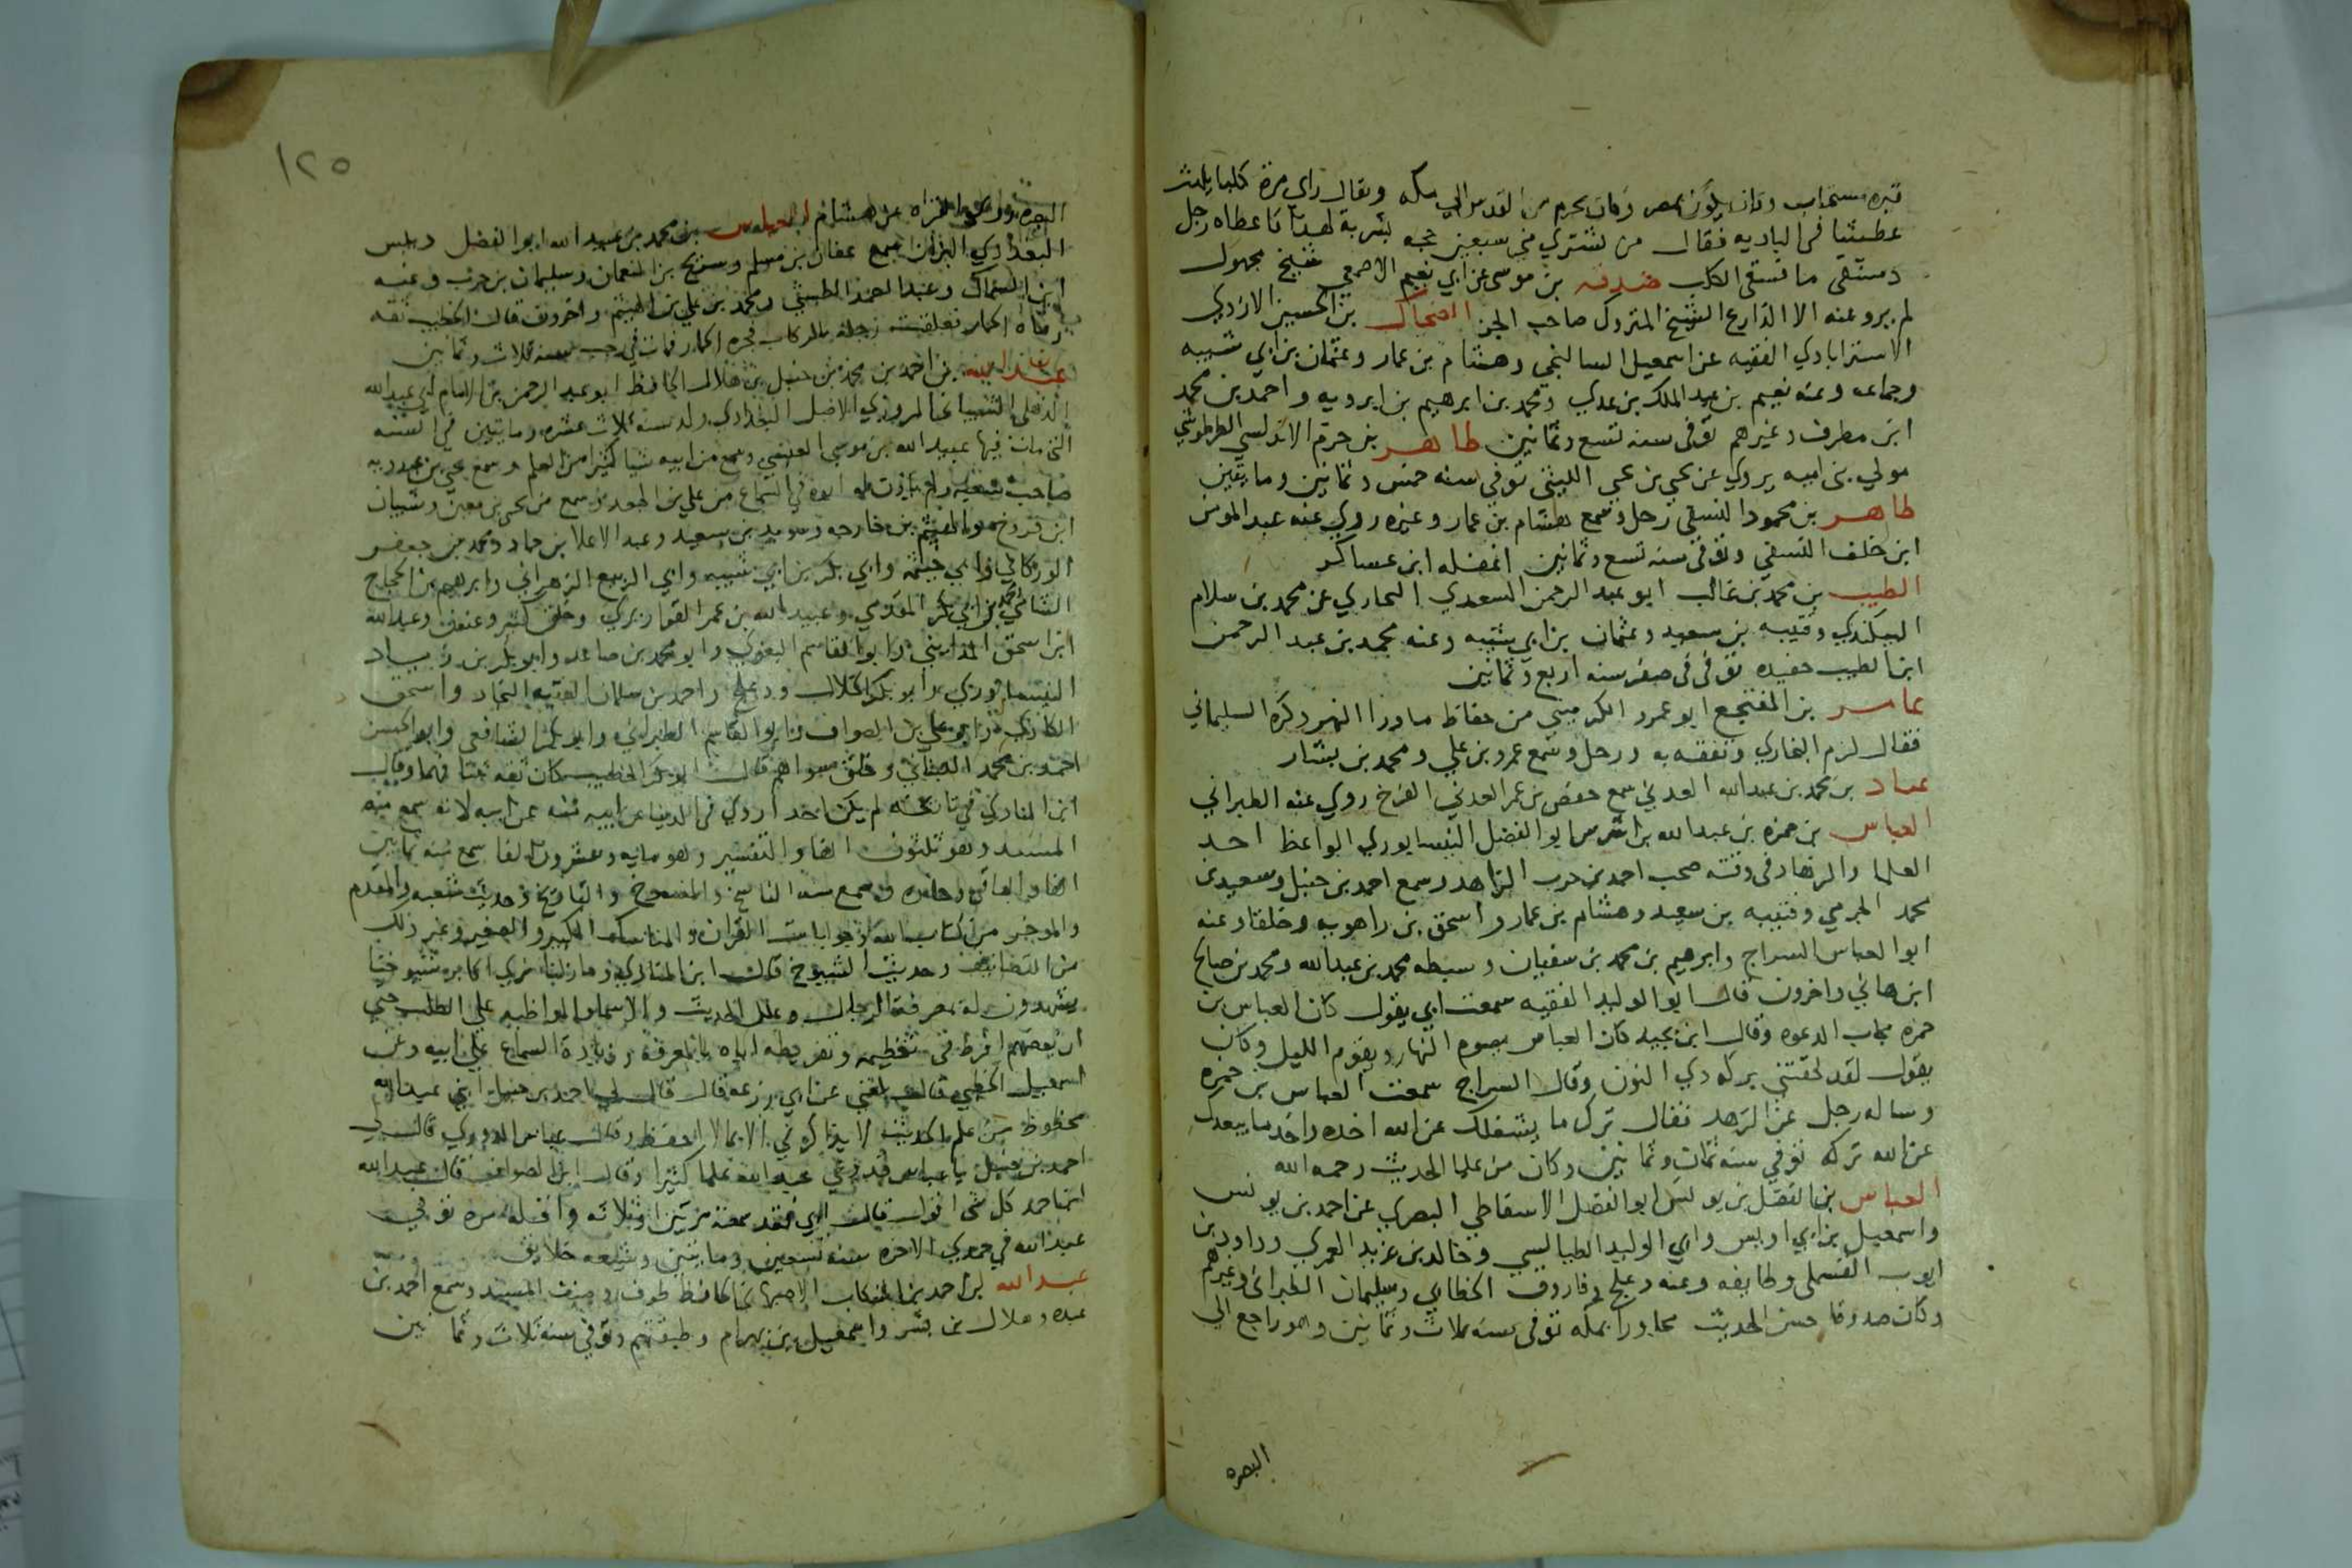 قبره مستجاب وكان يكون بمصر وكان يحرم من القدس الى مكه ويقال راى مره كلبا يلهث
عطشا فى الباديه فقال من يشترى منى سبعين حجه بشربة لهذا فاعطاه رجل
دستقى ما فسقى الكلب صدقه بن موسى عن ابي نعيم الاصمعي شيخ مجهول
لم يرو عنه الا الذارع الشيخ المتروك صاحب الجزء الضحاك بن الحسين الازدي
الاستراباذي الفقيه عن اسمعيل السالنجي وهشام بن عمار وعثمان بن ابي شيبه
وجماعه وعنه نعيم بن عبد الملك بن عدي ومحمد بن ابرهيم بن ابرويه واحمد بن محمد
ابن مطرف وغيرهم توفى سنه تسع وثمانين طاهر بن حزم الاندلسي الطرطوشي
مولي بنى اميه يروي عن يحيى بن يحيى الليثي توفي سنه خمس وثمانين ومايتين
طاهر بن محمود النسفي رحل وسمع هشام بن عمار وغيره روي عنه عبد المومن
ابن خلف النسفي وتوفى سنه تسع وثمانين اغفله ابن عساكر
الطيب بن محمد بن غالب ابو عبد الرحمن السعدي البخاري عن محمد بن سلام
البيكندي وقتيبه بن سعيد وعثمان بن ابي شيبه وعنه محمد بن عبد الرحمن
ابن الطيب حفيده توفى فى صفر سنه اربع وثمانين
عامر بن المنتجع ابو عمرو الكرميني من حفاظ ماورا النهر ذكره السليماني
فقال لزم البخاري وتفقه به ورحل وسمع عمرو بن علي ومحمد بن بشار
عباد بن محمد بن عبدالله العدني سمع حفص بن عمر العدني الفرخ روي عنه الطبراني
العباس بن حمزه بن عبدالله بن اشرس ابو الفضل النيسابوري الواعظ احد
العلما والزهاد فى وقته صحب احمد بن حرب الزاهد وسمع احمد بن حنبل وسعيد بن
محمد الجرمي وقتيبه بن سعيد وهشام بن عمار واسحق بن راهويه وخلقا وعنه
ابو العباس السراج وابرهيم بن محمد بن سفيان وسبطه محمد بن عبدالله ومحمد بن صالح
ابن هاني واخرون قال ابو الوليد الفقيه سمعت ابي يقول كان العباس بن
حمزه مجاب الدعوه وقال ابن نجيد كان العباس يصوم النهار ويقوم الليل وكان
يقول لقد لحقتني بركه ذي النون وقال السراج سمعت العباس بن حمزه
وساله رجل عن الزهد فقال ترك ما يشغلك عن الله اخذه واخذ ما يبعدك
عن الله تركه توفي سنه ثمان وثمانين وكان من علما الحديث رحمه الله
العباس بن الفضل بن يونس ابو الفضل الاسفاطي البصري عن احمد بن يونس
واسمعيل بن ابي اويس وابي الوليد الطيالسي وخالد بن يزيد العمري وداود بن
ايوب القسملى وطايفه وعنه دعلج وفاروق الخطابي وسليمان الطبراني وغيرهم
وكان صدوقا حسن الحديث مجاورا بمكه توفى سنه ثلاث وثمانين وهو راجع الي
البصره
١٢٥
البصره وروى القراه عن هشام العباس بن محمد بن عبيد الله ابو الفضل دبيس
البغدادي البزاز سمع عفان بن مسلم وسريج بن النعمان وسليمان بن حرب وعنه
ابن السماك وعبد الصمد الطستي ومحمد بن علي بن الهيثم واخرون قال الخطيب ثقه
رماه الحمار فعلقت رجله بالركاب فجره الحمار فمات في رجب سنه ثلاث وثمانين
عبد الله بن احمد بن محمد بن حنبل بن هلال الحافظ ابو عبد الرحمن بن الامام ابي عبدالله
الذهلي الشيباني المروزي الاصل البغدادي ولد سنه ثلاث عشره ومايتين في السنه
التى مات فيها عبيد الله بن موسى العبسي وسمع من ابيه شيا كثيرا من العلم وسمع يحيى بن عبدويه
صاحب شعبه ولم ياذن له ابوه في السماع من علي بن الجعد وسمع من يحيى بن معين وشيبان
ابن فروخ والهيثم بن خارجه وسويد بن سعيد وعبد الاعلا بن حماد ومحمد بن جعفر
الوركاني وابي خيثمه وابي بكر بن ابي شيبه وابي الربيع الزهراني وابرهيم بن الحجاج
الشامي ومحمد بن ابي بكر المقدمي وعبيد الله بن عمر القواريري وخلق كثير وعنه وعبدالله
ابن اسحق المدايني وابو القاسم البغوي وابو محمد بن صاعد وابو بكر بن زياد
النيسابوري وابو بكر الخلال ودعلج واحمد بن سلمان الفقيه النجاد واسحق
الكاذي وابو علي بن الصواف وابو القاسم الطبراني وابو بكر الشافعي وابو الحسن
احمد بن محمد اللبناني وخلق سواهم قال ابو بكر الخطيب كان ثقه ثبتا فهما وقال
ابن المنادي في تاريخه لم يكن احد اروي فى الدنيا عن ابيه منه عن ابيه لانه سمع منه
المسند وهو ثلثون الفا والتفسير وهو مايه وعشرون الفا سمع منه ثمانين
الفا والباقي وجاده وسمع منه الناسخ والمنسوخ والتاريخ وحديث شعبه والمقدم
والموخر من كتاب الله وجوابات القران والمناسك الكبير والصغير وغير ذلك
من التصانيف وحديث الشيوخ قال ابن المنادي وما زلنا نري اكابر شيوخنا
يشهدون له بمعرفة الرجال وعلل الحديث والاسما والمواظبه علي الطلب حتي
ان بعضهم افرط في تعظيمه وتقريظه اياه بالمعرفه وزيادة السماع علي ابيه وعن
اسمعيل الخطبي قال بلغني عن ابي زرعه قال قال لي احمد بن حنبل ابني عبدالله
محظوظ من علم الحديث لا يذاكرني الا بما لا احفظ وقال عباس الدوري قال لي
احمد بن حنبل يا عباس قد وعي عبدالله علما كثيرا وقال ابن الصواف قال عبدالله
ابن احمد كل شى اقول قال ابي فقد سمعته مرتين وثلاثه واقله مره توفي
عبدالله في جمدي الاخره سنه تسعين ومايتين وشيعه خلايق
عبدالله بن احمد بن اشكاب الاصبهاني الحافظ طوف وصنف المسند وسمع احمد بن
عبده وهلال بن بشر واسمعيل بن بهرام وطبقتهم وتوفي سنه ثلاث وثمانين